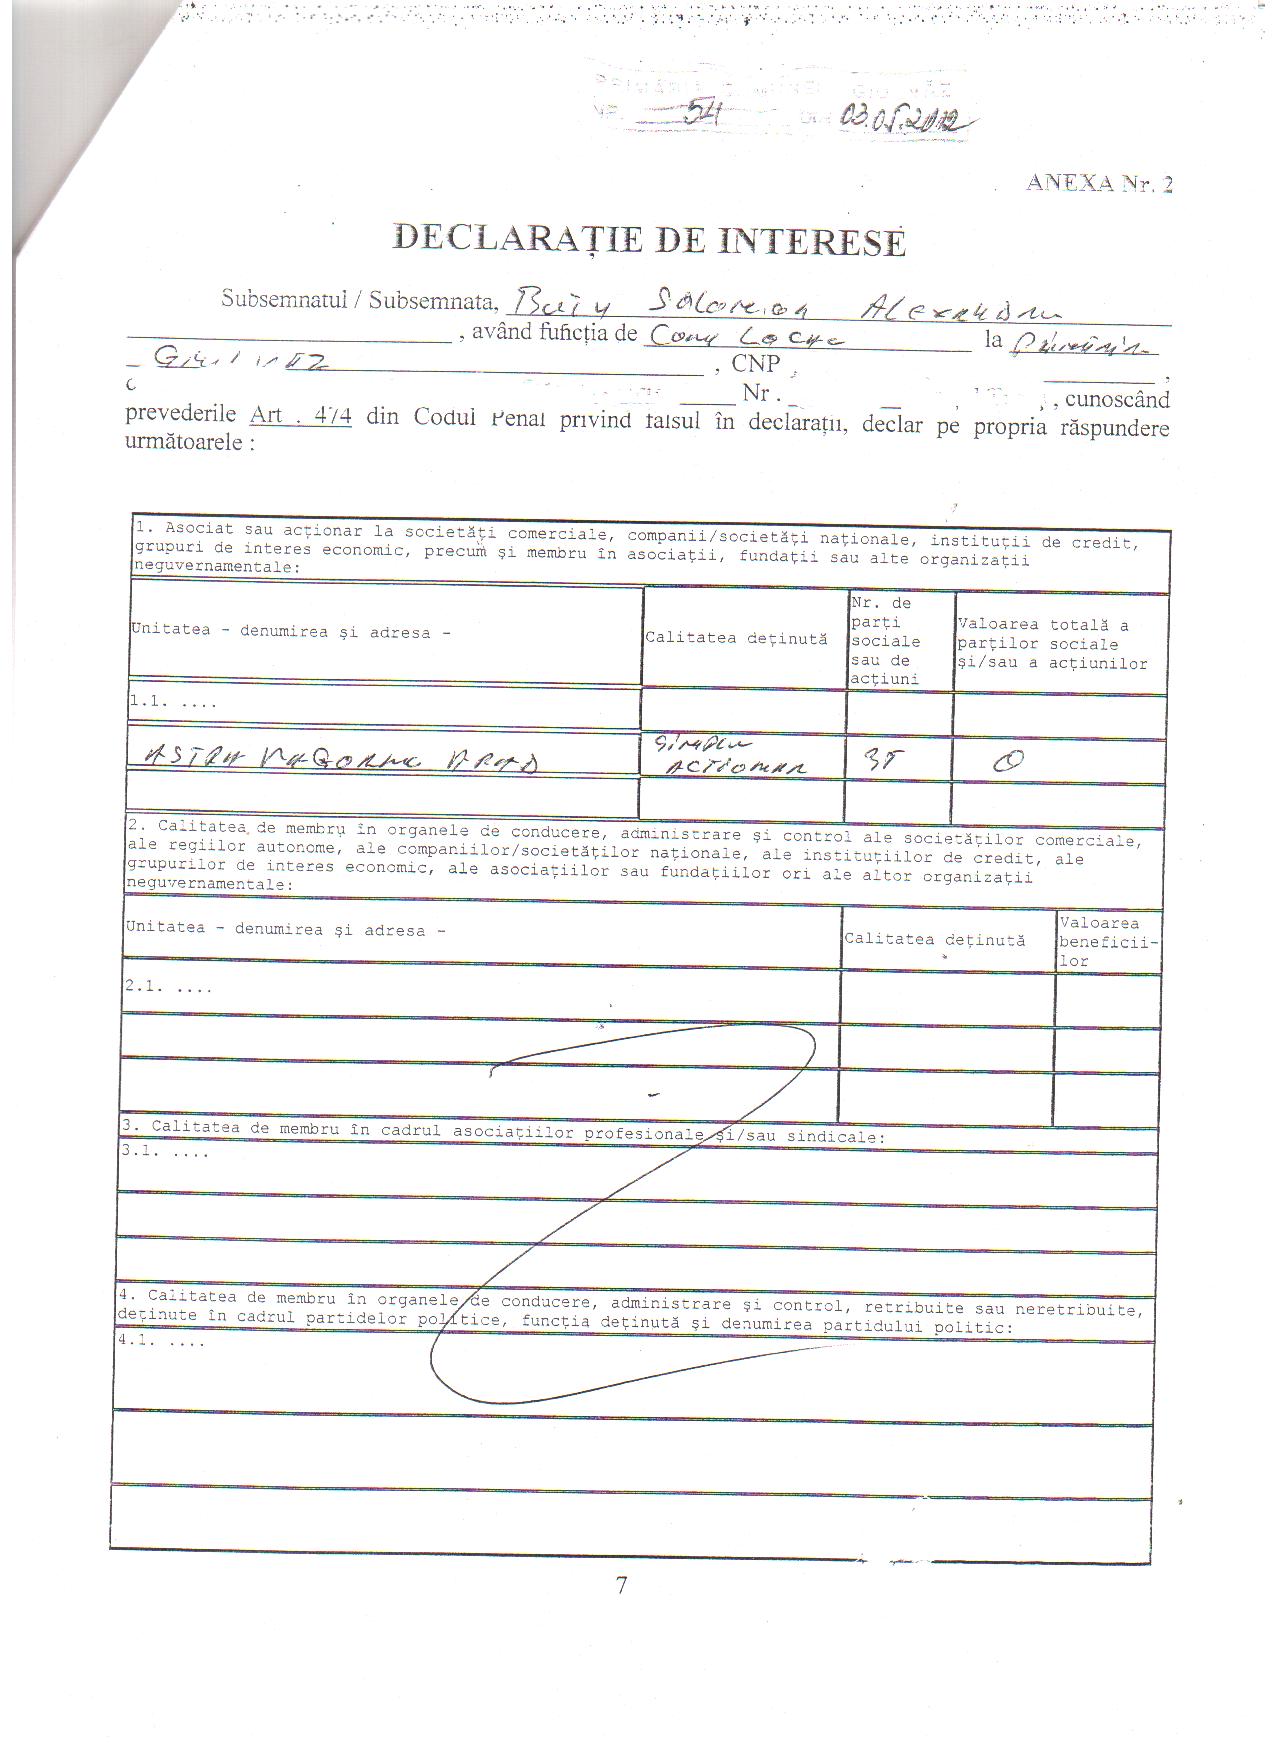 54 03.05.2012
ANEXA Nr. 2
DECLARAȚIE DE INTERESE
Subsemnatul / Subsemnata, Alexandru
, având funcția de Cons Local la Primăria
, CNP ,
Nr . , cunoscând
prevederile Art . 474 din Codul Penal privind falsul în declarații, declar pe propria răspundere
următoarele :
1. Asociat sau acţionar la societăţi comerciale, companii/societăţi naţionale, instituţii de credit,
grupuri de interes economic, precum şi membru în asociaţii, fundaţii sau alte organizaţii
neguvernamentale:
Unitatea - denumirea şi adresa -
Calitatea deţinută
Nr. de
parţi
sociale
sau de
acţiuni
Valoarea totală a
parţilor sociale
şi/sau a acţiunilor
1.1. ....
ASTRA VAGOANE ARAD
SIMPLU
ACTIONAR
35
0
2. Calitatea de membru în organele de conducere, administrare şi control ale societăţilor comerciale,
ale regiilor autonome, ale companiilor/societăţilor naţionale, ale instituţiilor de credit, ale
grupurilor de interes economic, ale asociaţiilor sau fundaţiilor ori ale altor organizaţii
neguvernamentale:
Unitatea - denumirea şi adresa -
Calitatea deţinută
Valoarea
beneficii-
lor
2.1. ....
3. Calitatea de membru în cadrul asociaţiilor profesionale şi/sau sindicale:
3.1. ....
4. Calitatea de membru în organele de conducere, administrare şi control, retribuite sau neretribuite,
deţinute în cadrul partidelor politice, funcţia deţinută şi denumirea partidului politic:
4.1. ....
7